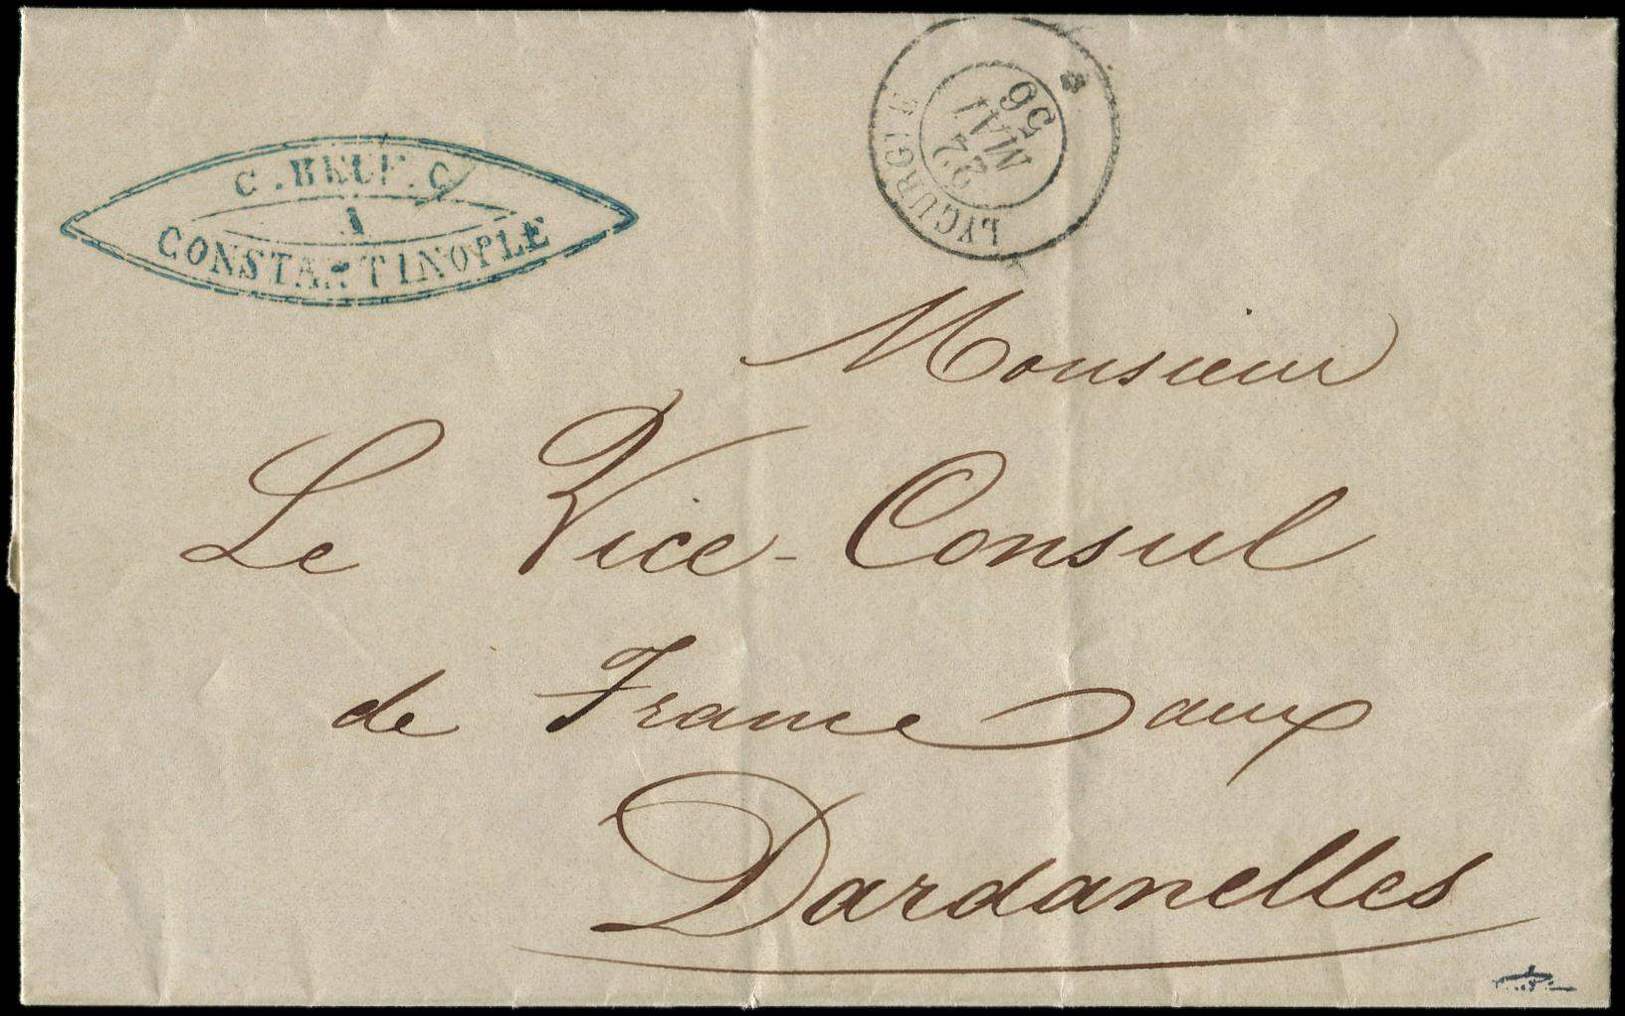 CONSTANTINOPLE
LYCURGUE
22
MAI
56
Monsieur
Le Vice-Consul
de France aux
Dardanelles